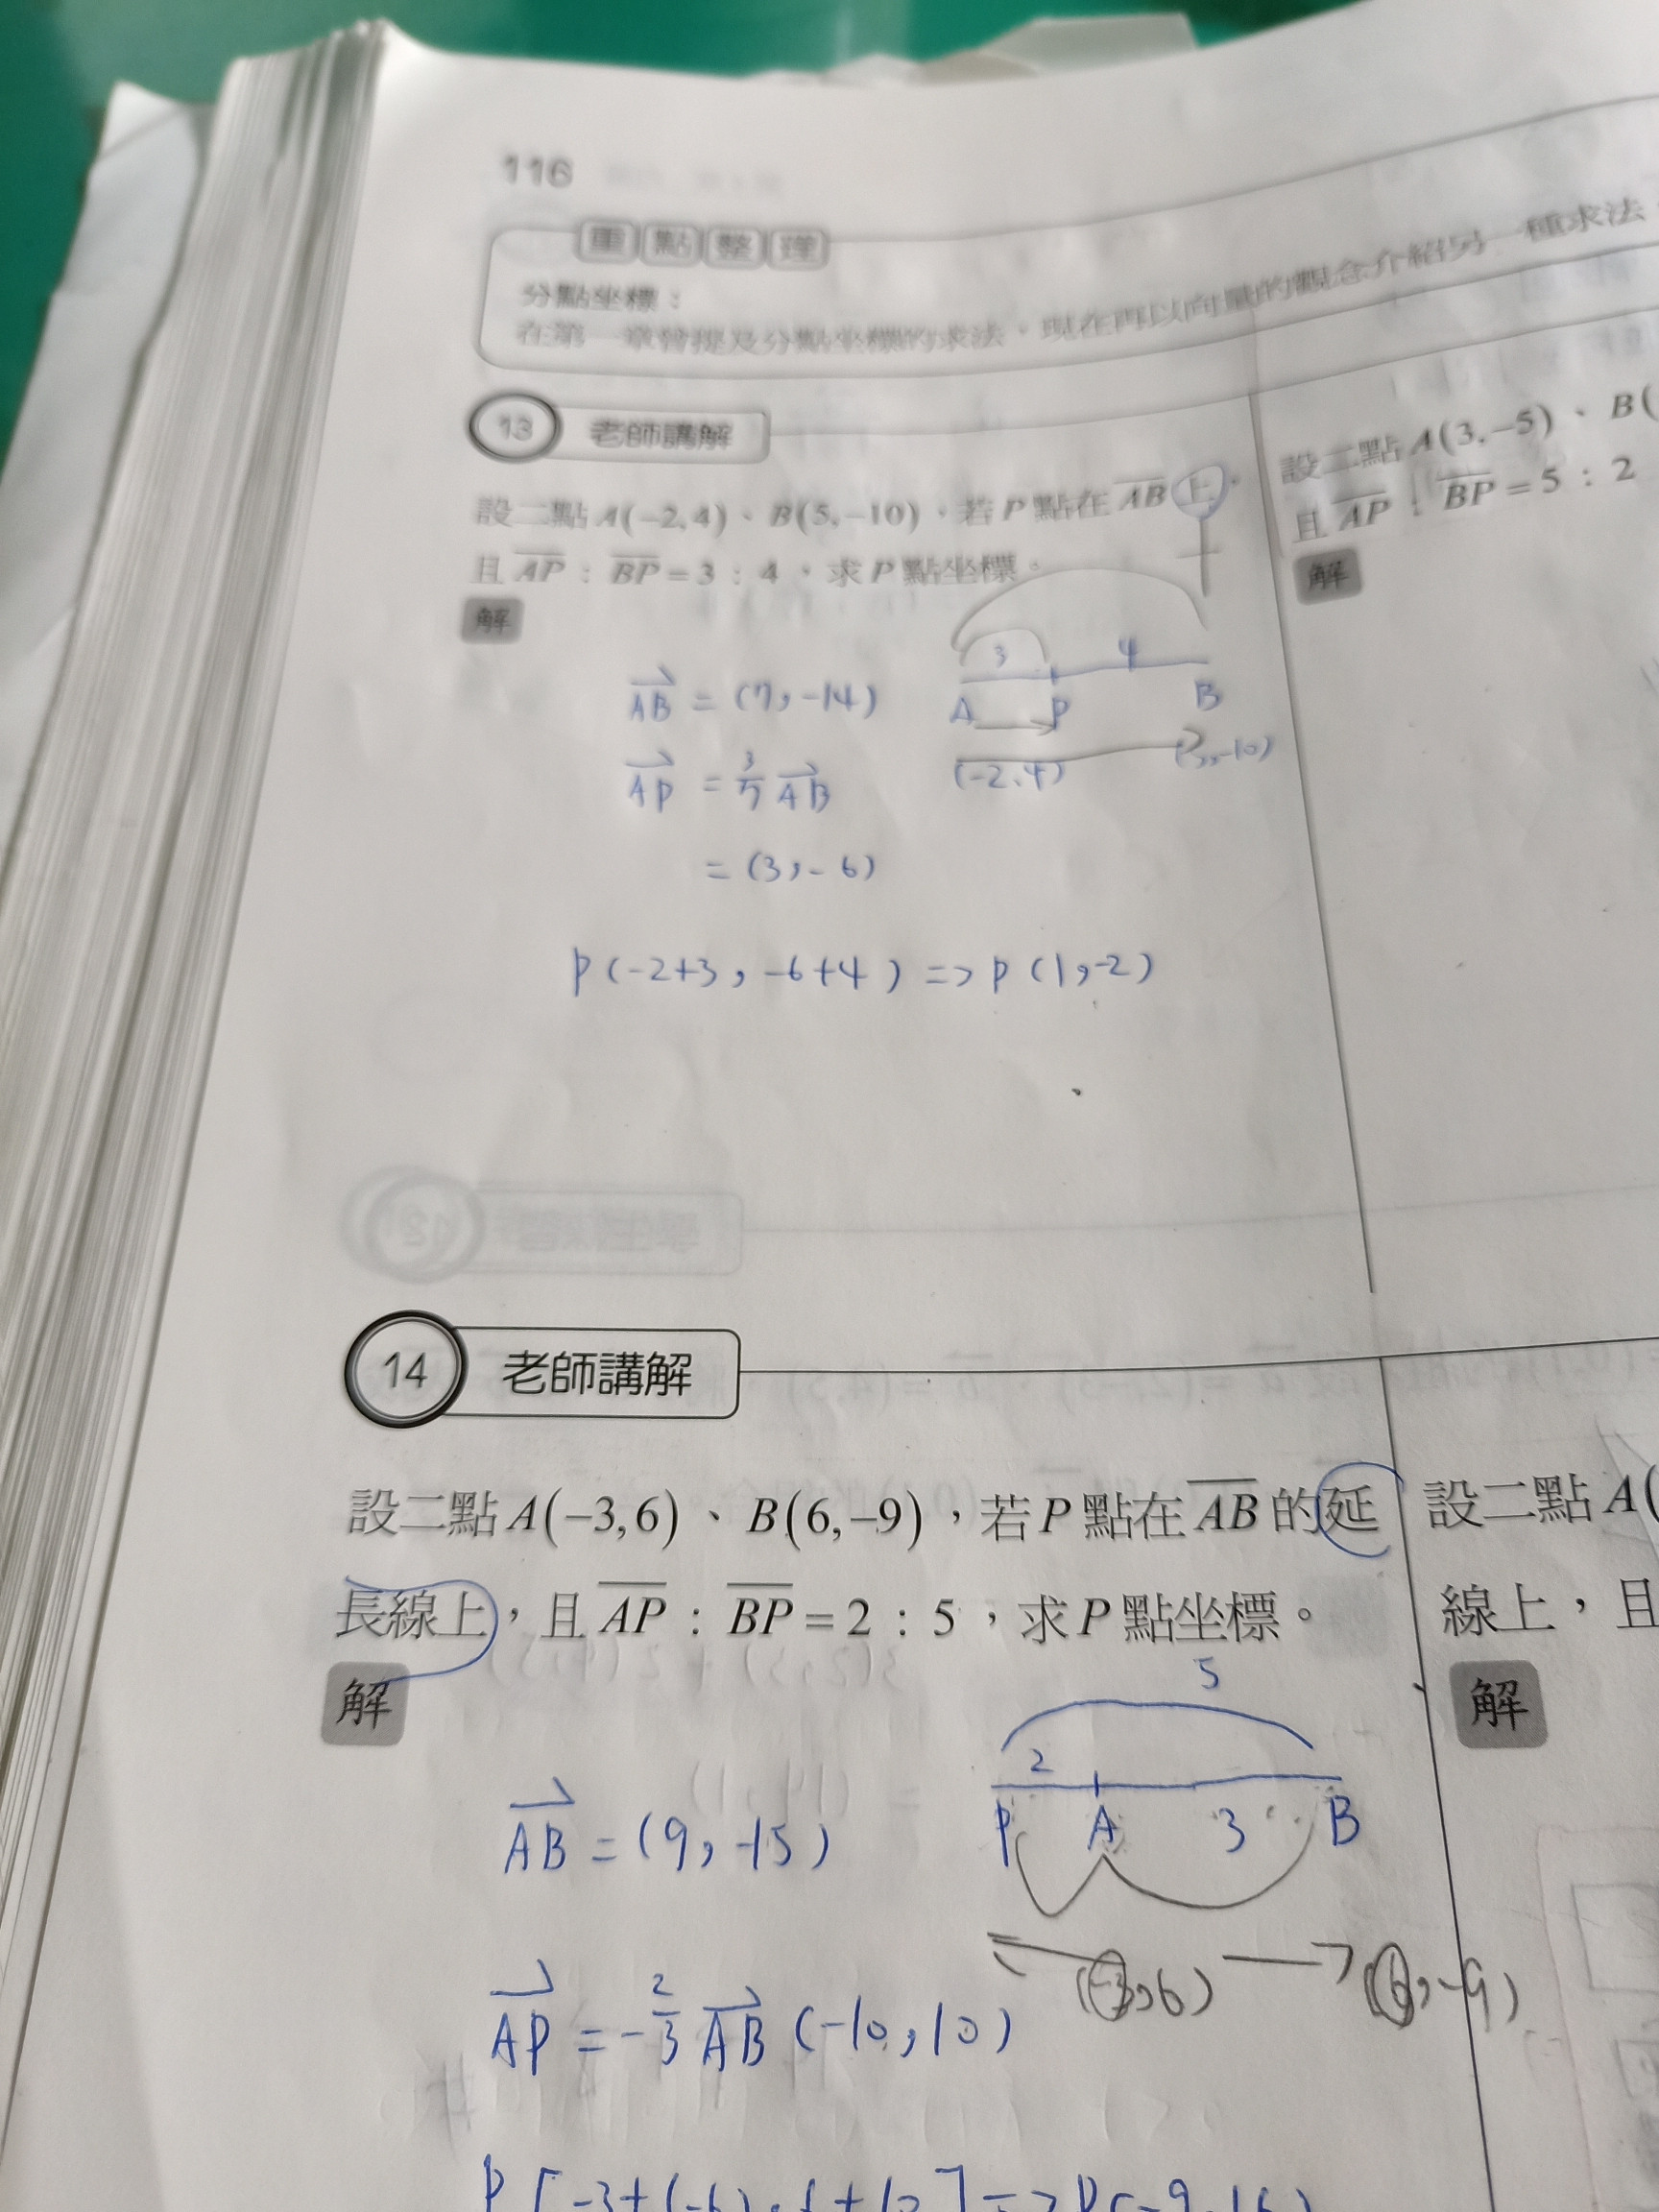 116
重點整理
分點坐標：
在第一章曾提及分點坐標的求法，現在再以向量的觀念介紹另一種求法
13 老師講解
設二點A(-2,4)、B(5,-10)，若P點在AB上，
且AP：BP=3：4，求P點坐標。
解
3 4
A P B
(-2,4)
,-10)
AB = (7,-14)
AP = 3/7 AB
= (3,-6)
P(-2+3, -6+4) => P(1,-2)
設二點A(3,-5)、B(
且AP：BP=5：2
解
14 老師講解
設二點A(-3,6)、B(6,-9)，若P點在AB的延
長線上，且AP：BP=2：5，求P點坐標。
解
5
2
P A 3 B
(-3,6) (6,-9)
AB = (9,-15)
AP = -2/3 AB (-10,10)
P[-3+(-6),6+10]=>P(-9,16)
設二點A(
線上，且
解